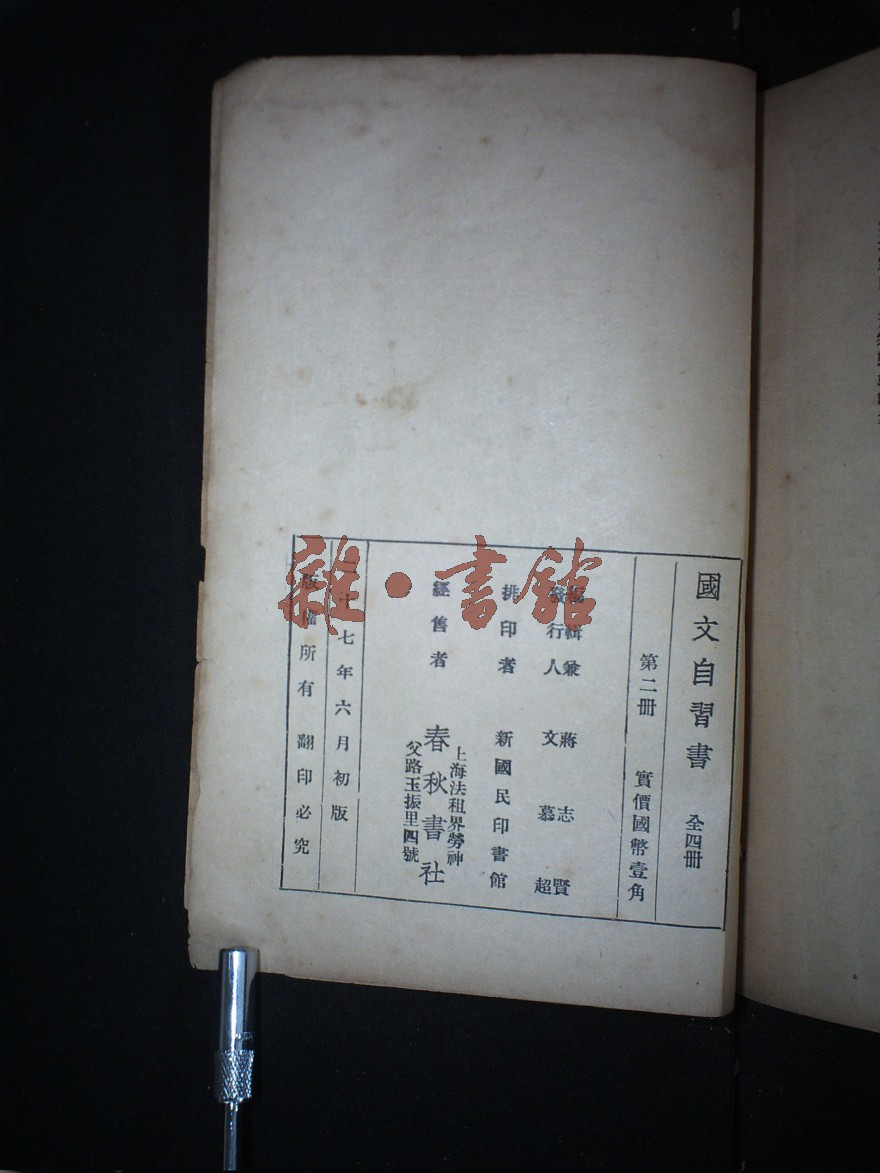 國文自習書 全四册
第二册 實價國幣壹角
編輯兼 蔣志賢
發行人 文慕超
排印者 新國民印書館
經售者 春秋書社
上海法租界勞神
父路玉振里四號
十七年六月初版
版權所有 翻印必究
雜·書館